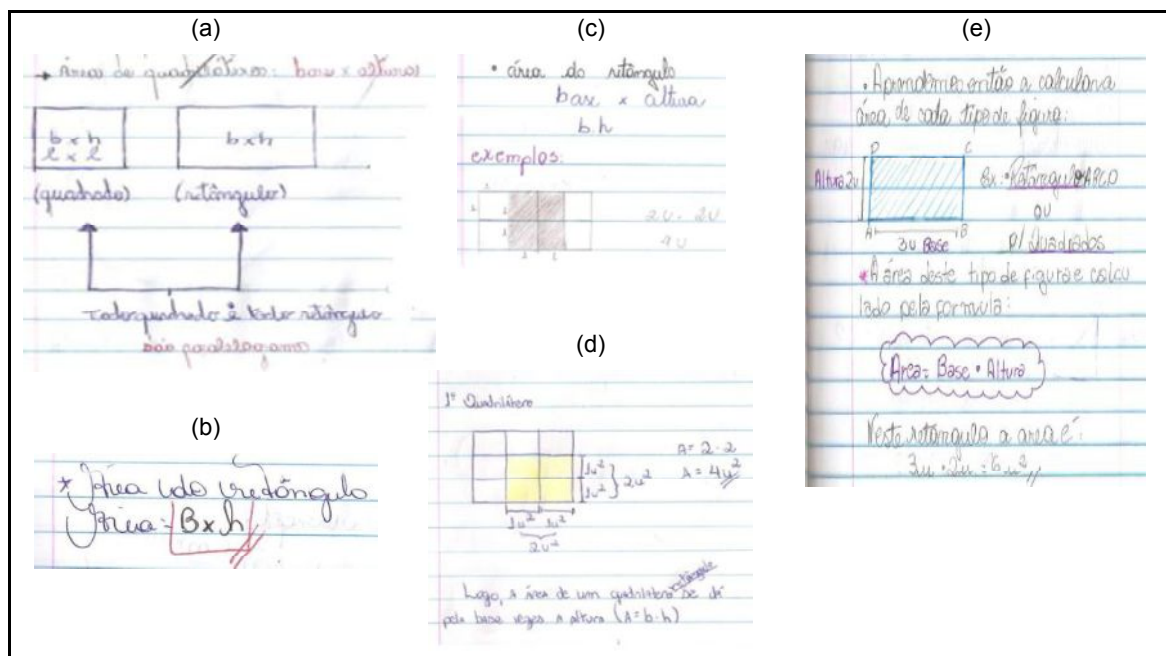 (a)
→ Áreas de quadriláteros: base x altura
b x h
l x l
b x h
(quadrado) (retângulo)
Todo quadrado é todo retângulo
são paralelogramo
(b)
* Área do retângulo
Área = B x h
(c)
• área do retângulo
base x altura
b.h
exemplos:
2u . 2u
4u
(d)
1º Quadrilátero
1u²
1u²
2u²
A = 2 . 2
A = 4u²
1u² 1u²
2u²
retângulo
Logo, a área de um quadrilátero se dá
pela base vezes a altura (A = b.h)
(e)
• Aprendemos então a calcular a
área de cada tipo de figura:
D C
Altura 2u
Ex: Retângulo ABCD
ou
A B
3u Base
p/ Quadrados
* A área deste tipo de figura e calcu
lado pela formula:
Area = Base • Altura
Neste retangulo a area é:
3u . 2u = 6 u²